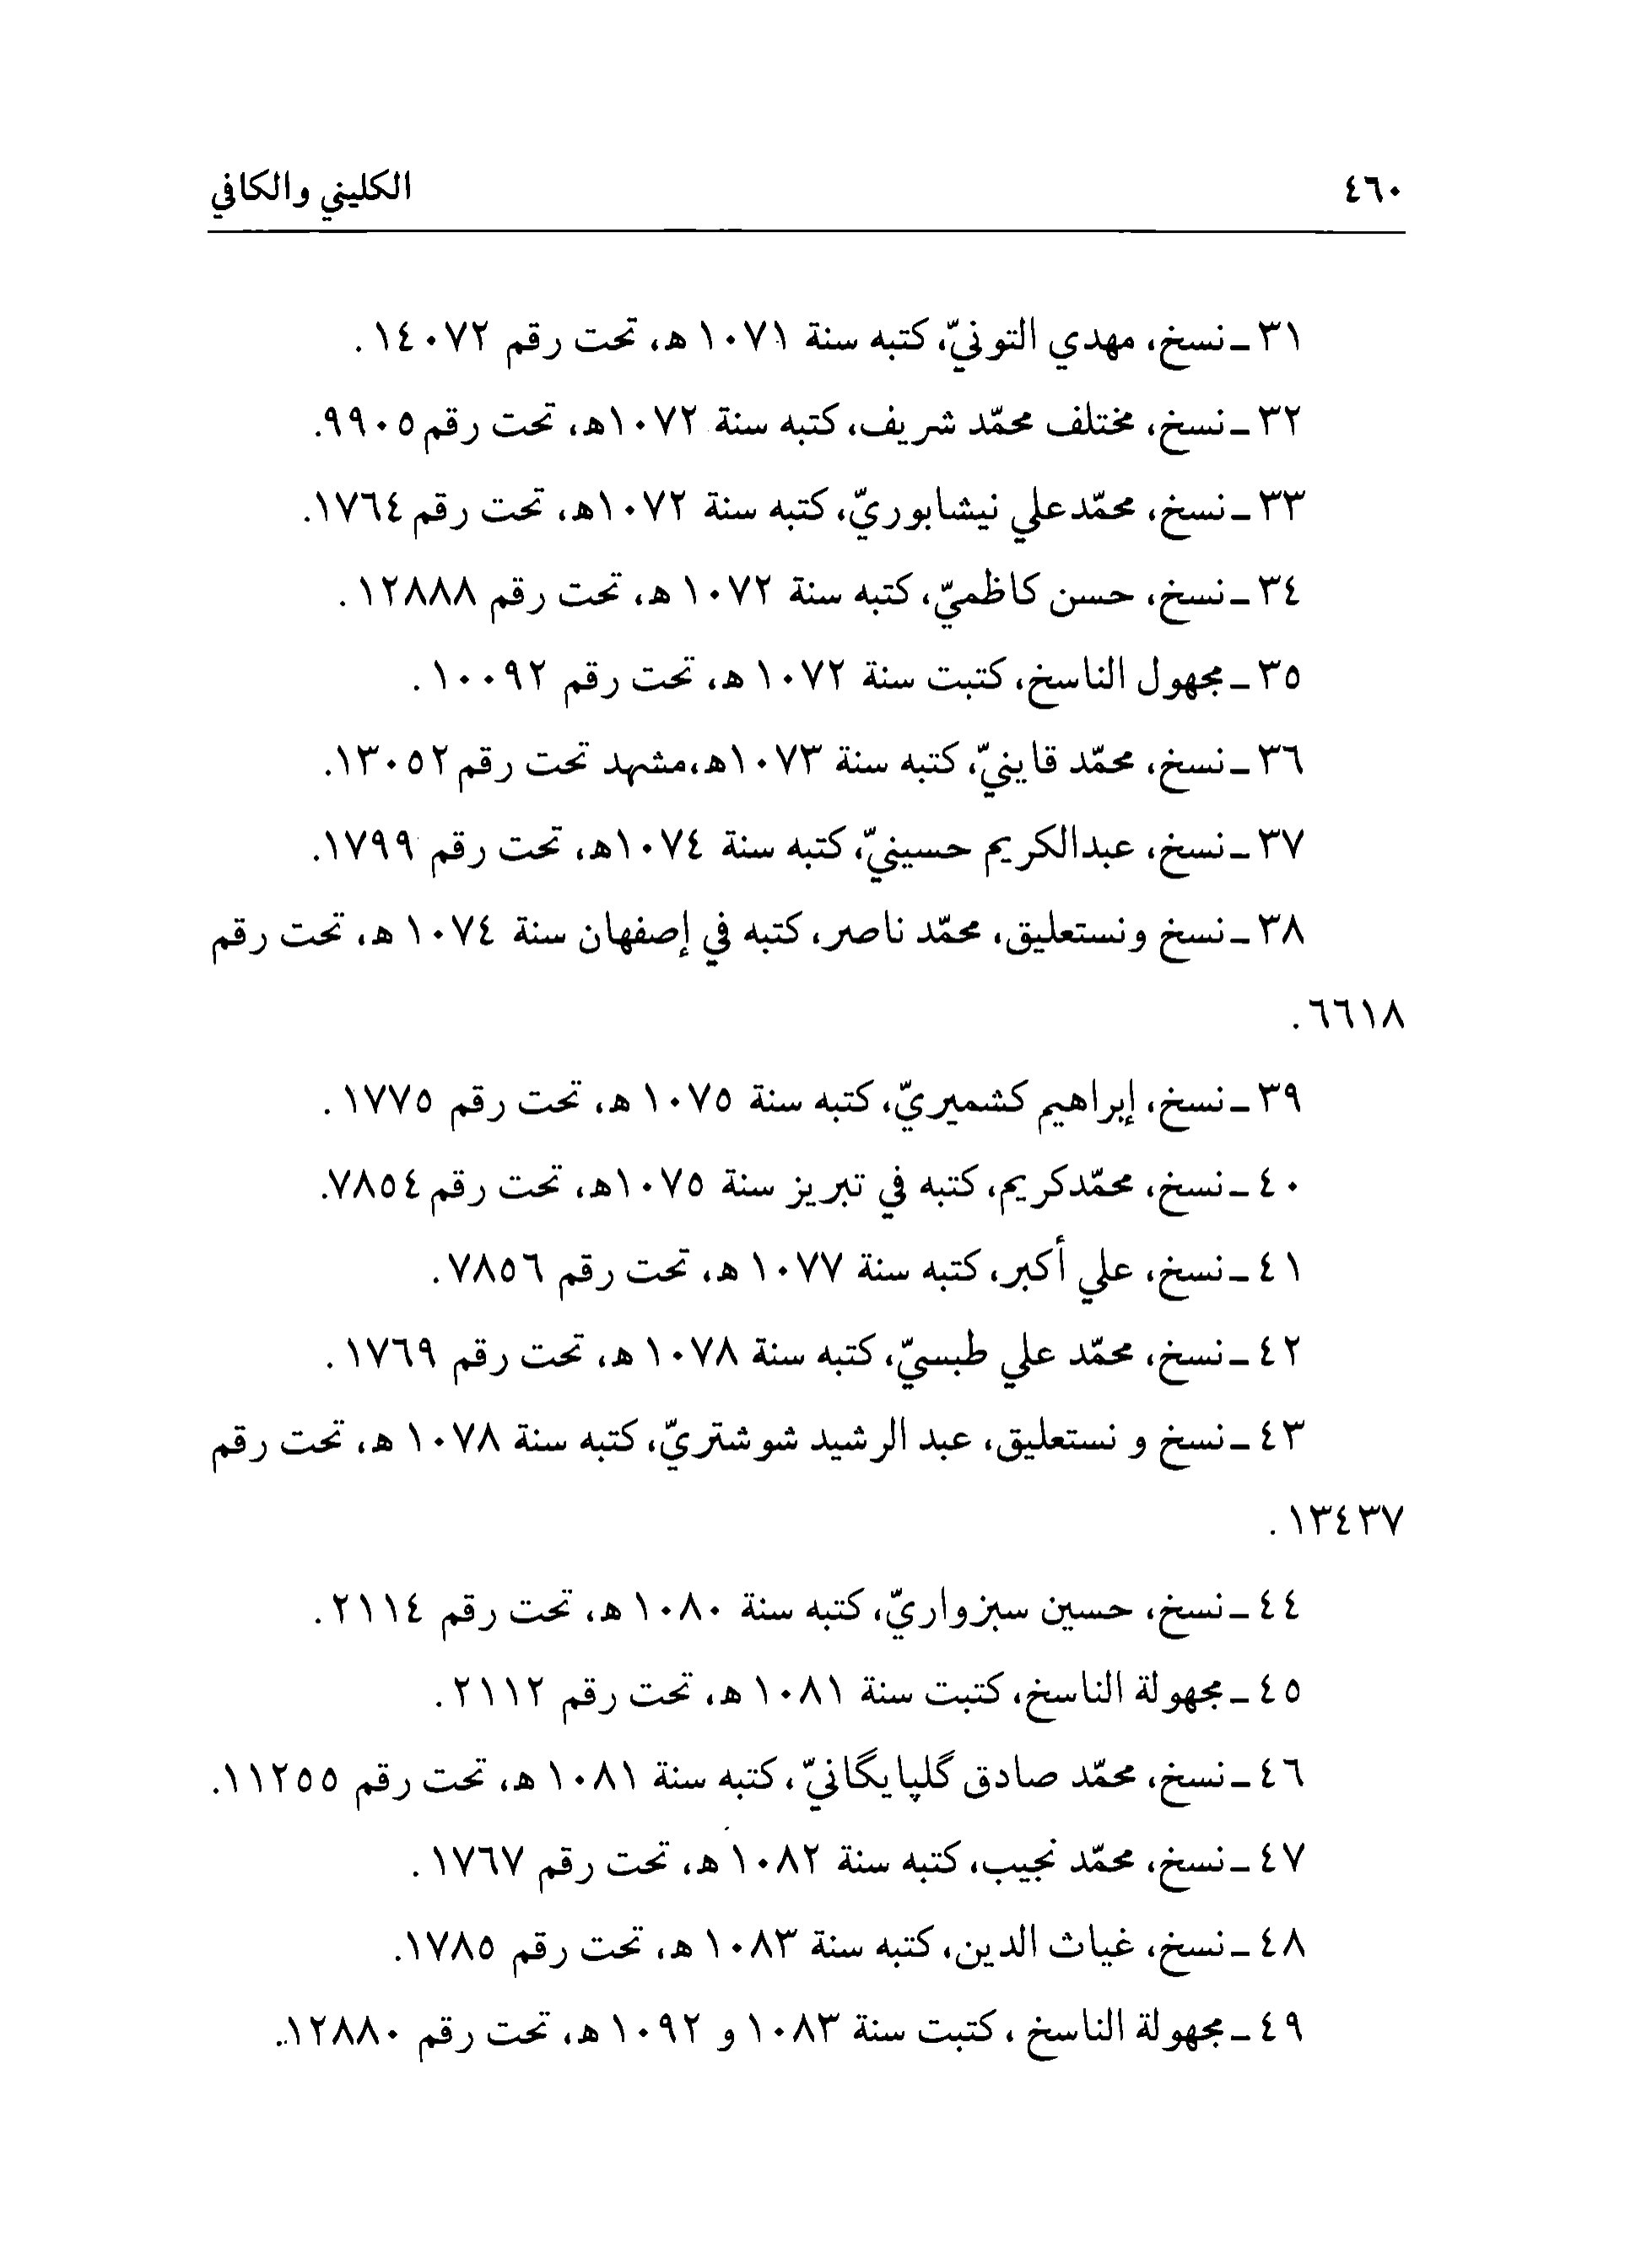 ٤٦٠
الكليني والكافي
٣١ ـ نسخ، مهدي التونيّ، كتبه سنة ١٠٧١ ه، تحت رقم ١٤٠٧٢ .
٣٢ ـ نسخ، مختلف محمّد شريف، كتبه سنة ١٠٧٢ه، تحت رقم ٩٩٠٥.
٣٣ ـ نسخ، محمّدعلي نيشابوريّ، كتبه سنة ١٠٧٢ه، تحت رقم ١٧٦٤.
٣٤ ـ نسخ، حسن كاظميّ، كتبه سنة ١٠٧٢ ه، تحت رقم ١٢٨٨٨ .
٣٥ ـ مجهول الناسخ، كتبت سنة ١٠٧٢ ه، تحت رقم ١٠٠٩٢ .
٣٦ ـ نسخ، محمّد قاينيّ، كتبه سنة ١٠٧٣ه،مشهد تحت رقم ١٣٠٥٢.
٣٧ ـ نسخ، عبدالكريم حسينيّ، كتبه سنة ١٠٧٤ه، تحت رقم ١٧٩٩.
٣٨ ـ نسخ ونستعليق، محمّد ناصر، كتبه في إصفهان سنة ١٠٧٤ ه، تحت رقم
٦٦١٨ .
٣٩ ـ نسخ، إبراهيم كشميريّ، كتبه سنة ١٠٧٥ ه، تحت رقم ١٧٧٥ .
٤٠ ـ نسخ، محمّدكريم، كتبه في تبريز سنة ١٠٧٥ه، تحت رقم ٧٨٥٤.
٤١ ـ نسخ، علي أكبر، كتبه سنة ١٠٧٧ ه، تحت رقم ٧٨٥٦ .
٤٢ ـ نسخ، محمّد علي طبسيّ، كتبه سنة ١٠٧٨ ه، تحت رقم ١٧٦٩ .
٤٣ ـ نسخ و نستعليق، عبد الرشيد شوشتريّ، كتبه سنة ١٠٧٨ ه، تحت رقم
١٣٤٣٧ .
٤٤ ـ نسخ، حسين سبزواريّ، كتبه سنة ١٠٨٠ ه، تحت رقم ٢١١٤ .
٤٥ ـ مجهولة الناسخ، كتبت سنة ١٠٨١ ه، تحت رقم ٢١١٢ .
٤٦ ـ نسخ، محمّد صادق گلپايگانيّ ، كتبه سنة ١٠٨١ ه، تحت رقم ١١٢٥٥.
٤٧ ـ نسخ، محمّد نجيب، كتبه سنة ١٠٨٢ ه، تحت رقم ١٧٦٧ .
٤٨ ـ نسخ، غياث الدين، كتبه سنة ١٠٨٣ ه، تحت رقم ١٧٨٥.
٤٩ ـ مجهولة الناسخ ، كتبت سنة ١٠٨٣ و ١٠٩٢ ه، تحت رقم ١٢٨٨٠.